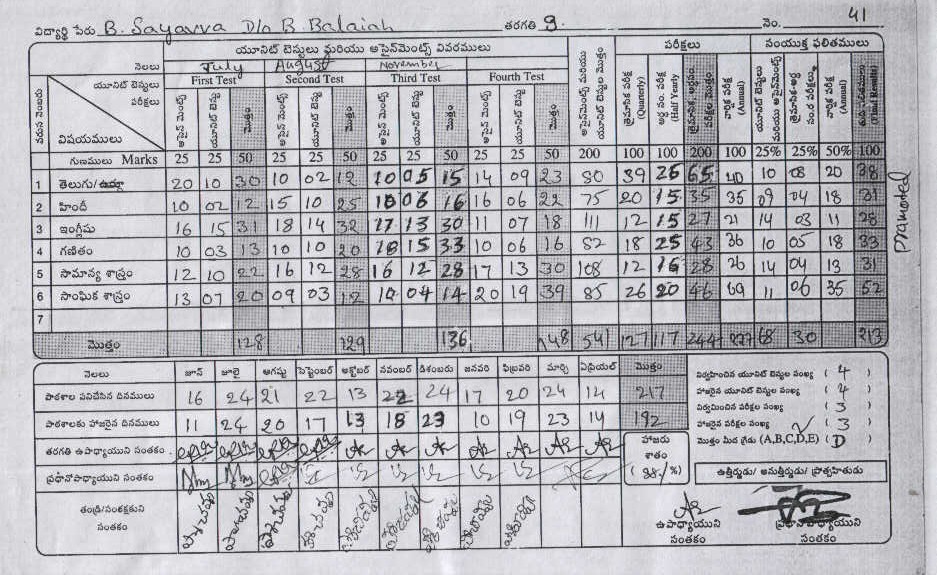 విద్యార్థి పేరు B. Sayavva D/o B Balaiah తరగతి 9. నెం. 41
యూనిట్ టెస్టులు మరియు అసైన్‌మెంట్స్ వివరములు పరీక్షలు సంయుక్త ఫలితములు
నెలలు July August November
యూనిట్ టెస్టులు పరీక్షలు First Test Second Test Third Test Fourth Test
విషయములు అసైన్ మెంట్స్ యూనిట్ టెస్టు మొత్తం అసైన్ మెంట్స్ యూనిట్ టెస్టు మొత్తం అసైన్ మెంట్స్ యూనిట్ టెస్టు మొత్తం అసైన్ మెంట్స్ యూనిట్ టెస్టు మొత్తం (Quarterly) (Half Yearly) (Annual) (Annual) (Final Results)
గుణములు Marks 25 25 50 25 25 50 25 25 50 25 25 50 200 100 100 200 100 25% 25% 50% 100
1 తెలుగు/ఉర్దూ 20 10 30 10 02 12 10 05 15 14 09 23 80 39 26 65 40 10 08 20 38
2 హిందీ 10 02 12 15 10 25 10 06 16 16 06 22 75 20 15 35 35 09 04 18 31
3 ఇంగ్లీషు 16 15 31 18 14 32 17 13 30 11 07 18 111 12 15 27 21 14 03 11 28
4 గణితం 10 03 13 10 10 20 18 15 33 10 06 16 82 18 25 43 36 10 05 18 33
5 సామాన్య శాస్త్రం 12 10 22 16 12 28 16 12 28 17 13 30 108 12 16 28 26 14 04 13 31
6 సాంఘిక శాస్త్రం 13 07 20 09 03 12 10 04 14 20 19 39 85 26 20 46 69 11 06 35 52
7
మొత్తం 128 129 136 148 541 127 117 244 227 68 30 213
promoted
నెలలు జూన్ జూలై ఆగష్టు సెప్టెంబర్ అక్టోబర్ నవంబర్ డిసెంబర్ జనవరి ఫిబ్రవరి మార్చి ఏప్రియల్ మొత్తం
పాఠశాల పనిచేసిన దినములు 16 24 21 22 13 22 24 17 20 24 14 217
పాఠశాలకు హాజరైన దినములు 11 24 20 17 13 18 23 10 19 23 14 192
తరగతి ఉపాధ్యాయుని సంతకం
ప్రధానోపాధ్యాయుని సంతకం
తండ్రి/సంరక్షకుని సంతకం
హాజరు శాతం (88./%)
నిర్వహించిన యూనిట్ టెస్టుల సంఖ్య (4)
హాజరైన యూనిట్ టెస్టుల సంఖ్య (4)
నిర్వహించిన పరీక్షల సంఖ్య (3)
హాజరైన పరీక్షల సంఖ్య (3)
మొత్తం మీద గ్రేడు (A,B,C,D,E) (D)
ఉత్తీర్ణుడు/ అనుత్తీర్ణుడు/ ప్రోత్సహితుడు
ఉపాధ్యాయుని సంతకం
ప్రధానోపాధ్యాయుని సంతకం